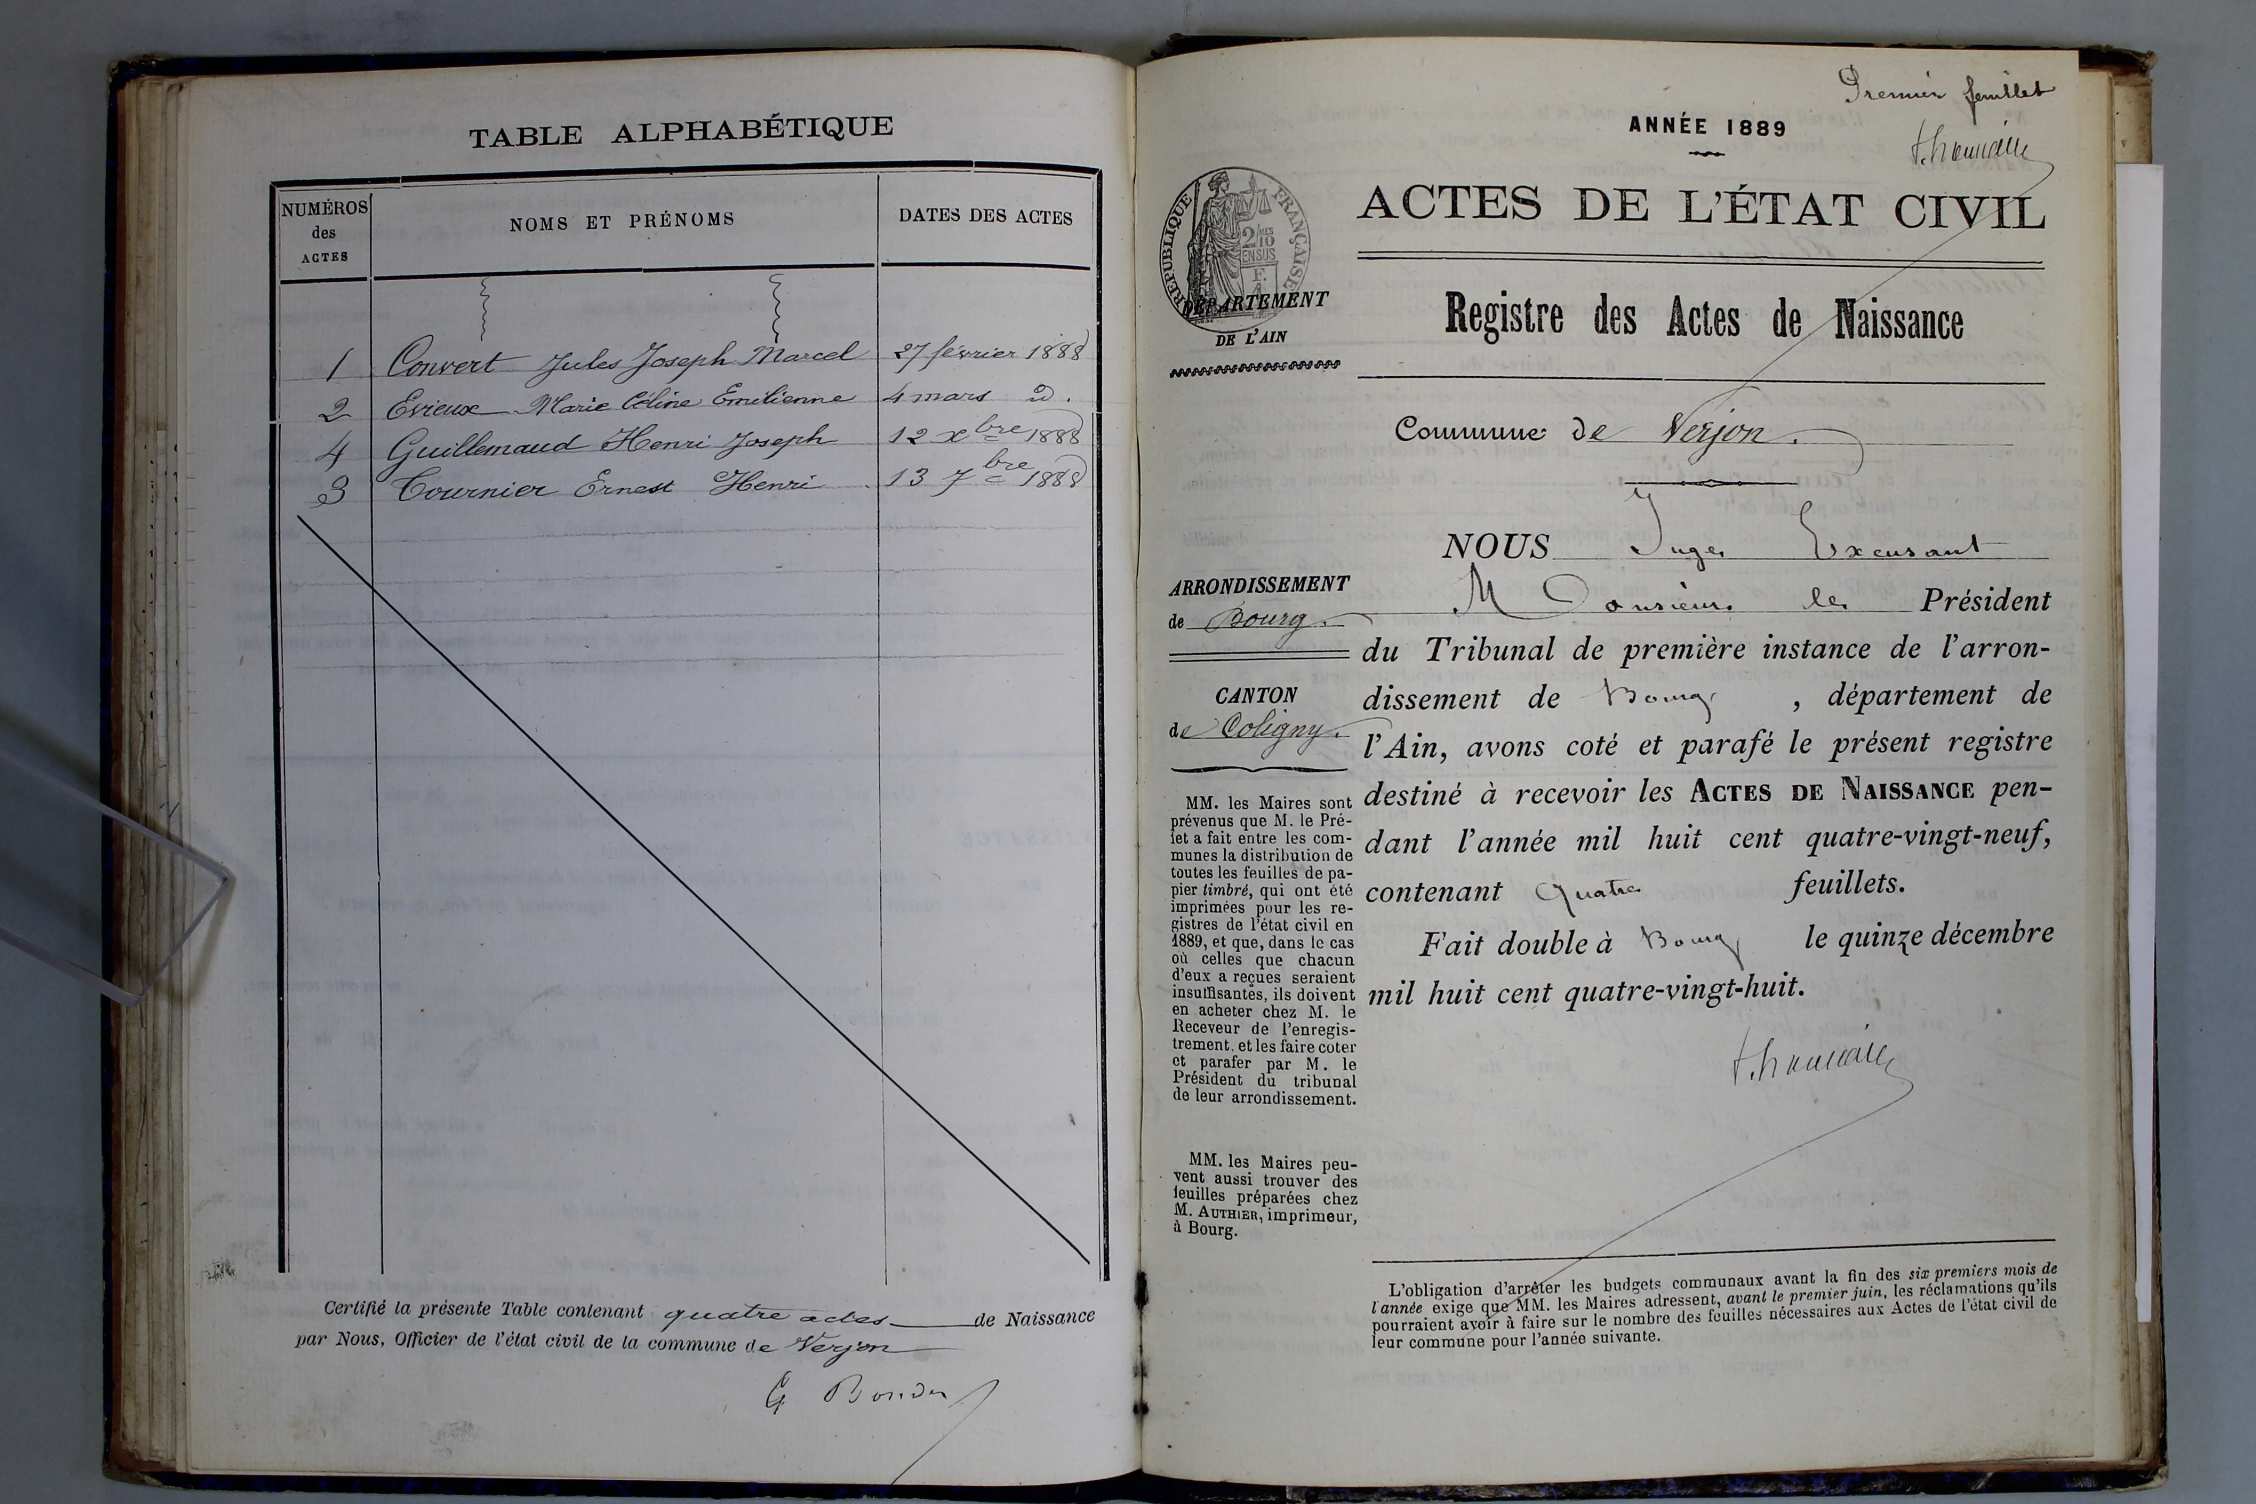 TABLE ALPHABÉTIQUE
NUMÉROS
des
ACTES
NOMS ET PRÉNOMS
DATES DES ACTES
1 Convert Jules Joseph Marcel 27 février 1888
2 Evieux Marie Céline Emilienne 4 mars d.
4 Guillemaud Henri Joseph 12 xbre 1888
3 Tournier Ernest Henri 13 7bre 1888
Certifié la présente Table contenant quatre actes de Naissance
par Nous, Officier de l'état civil de la commune de Verjon
Premier feuillet
ANNÉE 1889
ACTES DE L'ÉTAT CIVIL
RÉPUBLIQUE FRANÇAISE
DÉPARTEMENT
DE L'AIN
Registre des Actes de Naissance
Commune de Verjon.
NOUS Juge Excusant
Monsieur le Président
du Tribunal de première instance de l'arron-
dissement de Bourg, département de
l'Ain, avons coté et parafé le présent registre
destiné à recevoir les ACTES DE NAISSANCE pen-
dant l'année mil huit cent quatre-vingt-neuf,
contenant quatre feuillets.
Fait double à Bourg le quinze décembre
mil huit cent quatre-vingt-huit.
ARRONDISSEMENT
de Bourg.
CANTON
de Coligny.
MM. les Maires sont
prévenus que M. le Pré-
fet a fait entre les com-
munes la distribution de
toutes les feuilles de pa-
pier timbré, qui ont été
imprimées pour les re-
gistres de l'état civil en
1889, et que, dans le cas
où celles que chacun
d'eux a reçues seraient
insuffisantes, ils doivent
en acheter chez M. le
Receveur de l'enregis-
trement, et les faire coter
et parafer par M. le
Président du tribunal
de leur arrondissement.
MM. les Maires peu-
vent aussi trouver des
feuilles préparées chez
M. AUTHIER, imprimeur,
à Bourg.
L'obligation d'arrêter les budgets communaux avant la fin des six premiers mois de
l'année exige que MM. les Maires adressent, avant le premier juin, les réclamations qu'ils
pourraient avoir à faire sur le nombre des feuilles nécessaires aux Actes de l'état civil de
leur commune pour l'année suivante.